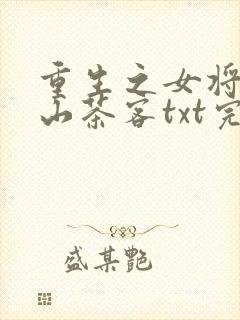 重生之女将
山茶客txt完
盛某艷